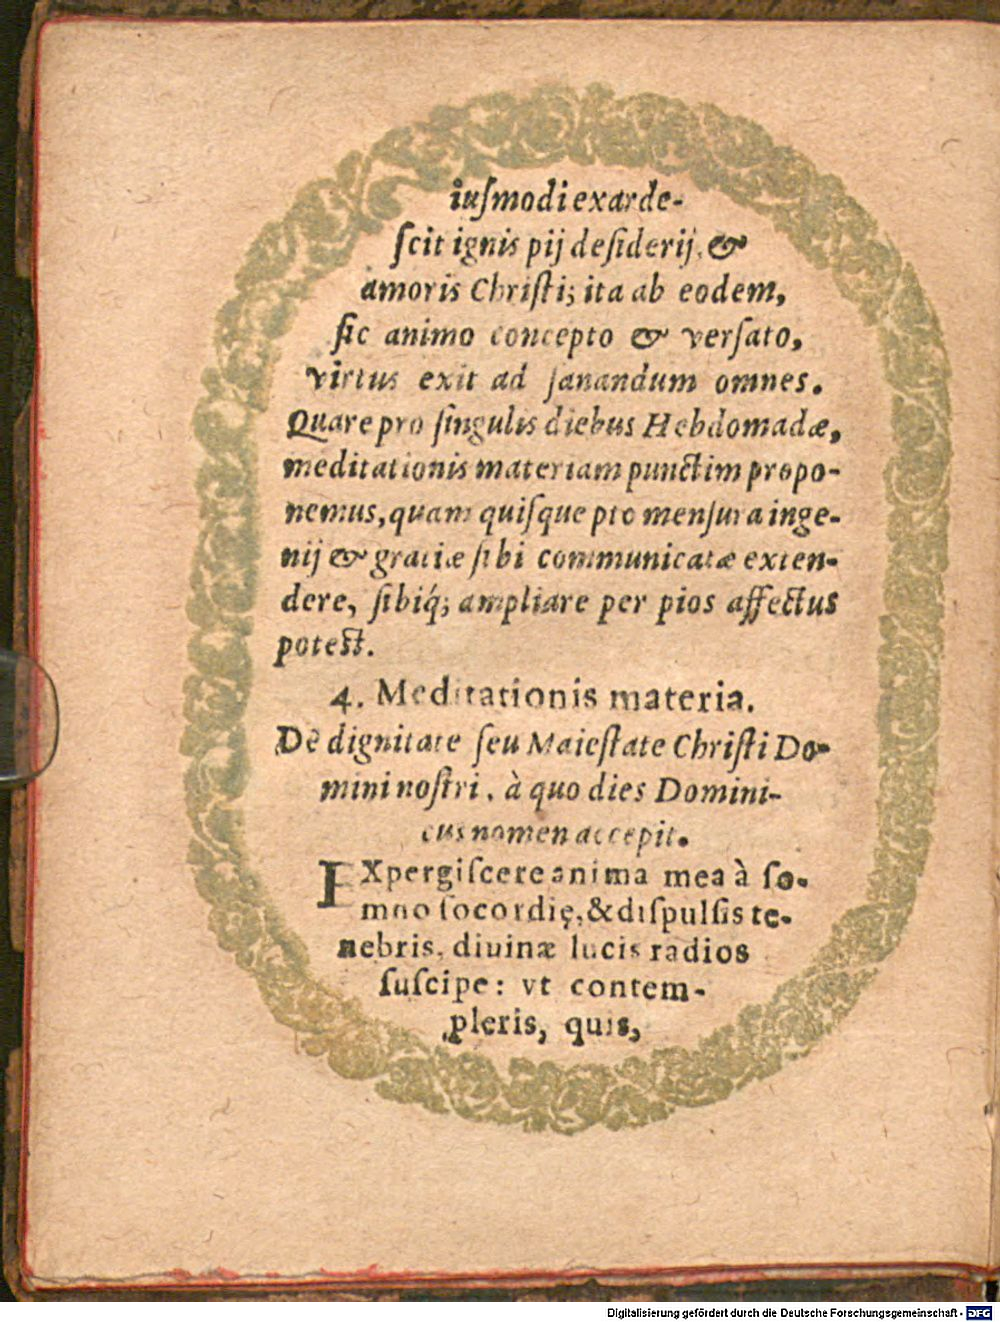 iuſmodi exarde-
ſcit ignis pij deſiderij, &
amoris Chriſti; ita ab eodem,
ſic animo concepto & verſato,
virtus exit ad ſanandum omnes.
Quare pro ſingulis diebus Hebdomadæ,
meditationis materiam punctim propo-
nemus, quam quiſque pro menſura inge-
nij & gratiæ ſibi communicatæ exten-
dere, ſibiq́; ampliare per pios affectus
poteſt.
4. Meditationis materia.
De dignitate ſeu Maieſtate Chriſti Do-
mini noſtri, à quo dies Domini-
cus nomen accepit.
EXpergiſcere anima mea à ſo-
mno ſocordię, & diſpulſis te-
nebris, diuinæ lucis radios
ſuſcipe: vt contem-
pleris, quis,
Digitalisierung gefördert durch die Deutsche Forschungsgemeinschaft - DFG